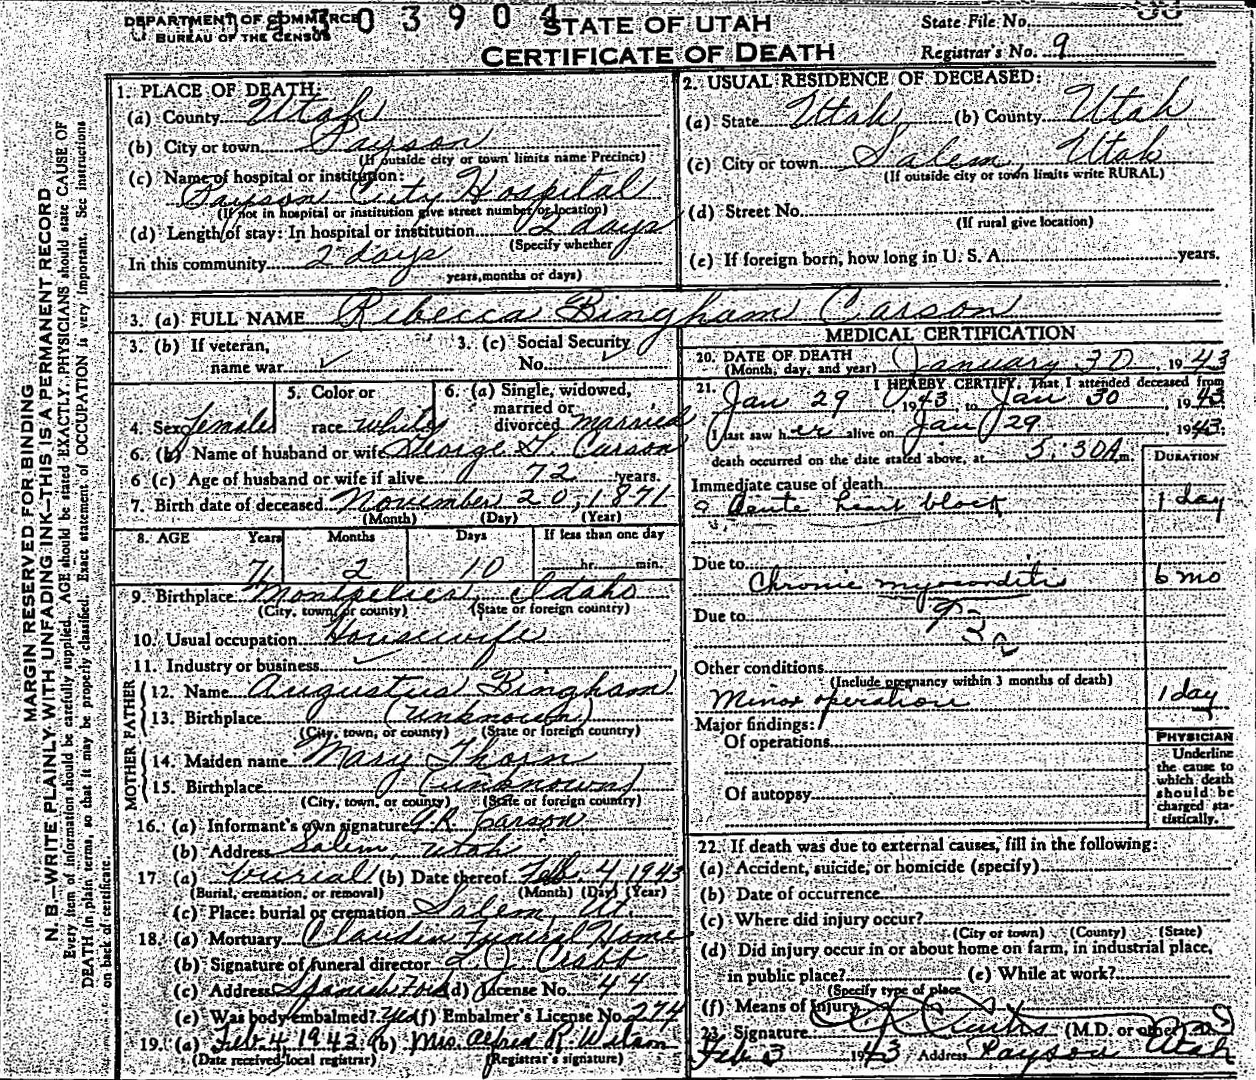 DEPARTMENT OF COMMERCE
BUREAU OF THE CENSUS
0 3 9 0 4
STATE OF UTAH
CERTIFICATE OF DEATH
State File No.
Registrar's No. 9
MARGIN RESERVED FOR BINDING
N. B.—WRITE PLAINLY, WITH UNFADING INK—THIS IS A PERMANENT RECORD
Every item of information should be carefully supplied. AGE should be stated EXACTLY. PHYSICIANS should state CAUSE OF
DEATH in plain terms, so that it may be properly classified. Exact statement of OCCUPATION is very important. See instructions
on back of certificate.
1. PLACE OF DEATH:
(a) County Utah
(b) City or town Payson
(If outside city or town limits name Precinct)
(c) Name of hospital or institution:
Payson City Hospital
(If not in hospital or institution give street number or location)
(d) Length of stay: In hospital or institution 2 days
(Specify whether
In this community 2 days
years, months or days)
2. USUAL RESIDENCE OF DECEASED:
(a) State Utah (b) County Utah
(c) City or town Salem, Utah
(If outside city or town limits write RURAL)
(d) Street No.
(If rural give location)
(e) If foreign born, how long in U. S. A. years.
3. (a) FULL NAME Rebecca Bingham Carson
3. (b) If veteran,
name war
3. (c) Social Security
No.
4. Sex female
5. Color or
race white
6. (a) Single, widowed,
married or
divorced married
6. (b) Name of husband or wife George G. Carson
6 (c) Age of husband or wife if alive 72 years.
7. Birth date of deceased November 20, 1871
(Month) (Day) (Year)
8. AGE Years Months Days If less than one day
71 2 10 hr. min.
9. Birthplace Montpelier, Idaho
(City, town, or county) (State or foreign country)
10. Usual occupation Housewife
11. Industry or business
FATHER
12. Name Augustus Bingham
13. Birthplace (unknown)
(City, town, or county) (State or foreign country)
MOTHER
14. Maiden name Mary Thorn
15. Birthplace (unknown)
(City, town, or county) (State or foreign country)
16. (a) Informant's own signature G.R. Carson
(b) Address Salem, Utah
17. (a) burial (b) Date thereof Feb. 4 1943
(Burial, cremation, or removal) (Month) (Day) (Year)
(c) Place: burial or cremation Salem, Ut.
18. (a) Mortuary Claudin Funeral Home
(b) Signature of funeral director
(c) Address Spanish Fork (d) License No. 44
(e) Was body embalmed? Yes (f) Embalmer's License No. 274
19. (a) Feb. 4, 1943 (b) Mrs. Alfred R. Wilson
(Date received local registrar) (Registrar's signature)
MEDICAL CERTIFICATION
20. DATE OF DEATH January 30, 1943
(Month, day, and year)
21. I HEREBY CERTIFY, That I attended deceased from
Jan 29 1943, to Jan 30, 1943
I last saw her alive on Jan 29 1943;
death occurred on the date stated above, at 5:30A m.
DURATION
Immediate cause of death
Acute heart block 1 day
Due to Chronic myocarditis 6 mo
Due to
93
2
Other conditions
(Include pregnancy within 3 months of death)
Minor operation 1 day
Major findings:
Of operations
Of autopsy
PHYSICIAN
Underline
the cause to
which death
should be
charged sta-
tistically.
22. If death was due to external causes, fill in the following:
(a) Accident, suicide, or homicide (specify)
(b) Date of occurrence
(c) Where did injury occur?
(City or town) (County) (State)
(d) Did injury occur in or about home on farm, in industrial place,
in public place? (e) While at work?
(Specify type of place
(f) Means of Injury
23. Signature (M.D. or other)
Feb 3 1943 Address Payson Utah